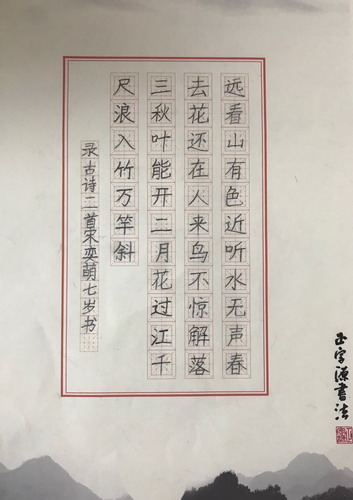 远看山有色近听水无声春
去花还在人来鸟不惊解落
三秋叶能开二月花过江千
尺浪入竹万竿斜
录古诗二首宋奕萌七岁书
正字源书法